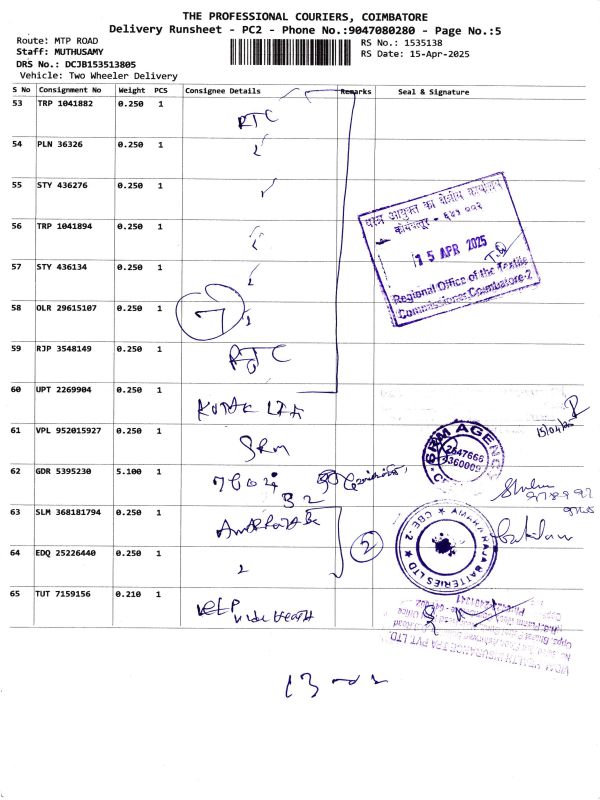 THE PROFESSIONAL COURIERS, COIMBATORE
Delivery Runsheet - PC2 - Phone No.:9047080280 - Page No.:5
Route: MTP ROAD
Staff: MUTHUSAMY
DRS No.: DCJB153513805
Vehicle: Two Wheeler Delivery
RS No.: 1535138
RS Date: 15-Apr-2025
S No Consignment No Weight PCS Consignee Details Remarks Seal & Signature
53 TRP 1041882 0.250 1
RTC
54 PLN 36326 0.250 1
55 STY 436276 0.250 1
56 TRP 1041894 0.250 1
57 STY 436134 0.250 1
58 OLR 29615107 0.250 1
7
59 RJP 3548149 0.250 1
RTC
वस्त्र आयुक्त का क्षेत्रीय कार्यालय
15 APR 2025
Regional Office of the Textile
Commissioner, Coimbatore-2
60 UPT 2269904 0.250 1
61 VPL 952015927 0.250 1
SRM
15/04/25
SRM AGENCY
2647666
4360009
62 GDR 5395230 5.100 1
B 2
63 SLM 368181794 0.250 1
2
AMARA RAJA BATTERIES LTD
CBE-2
64 EDQ 25226440 0.250 1
65 TUT 7159156 0.210 1
HEALTH INSURANCE TPA PVT LTD.
13